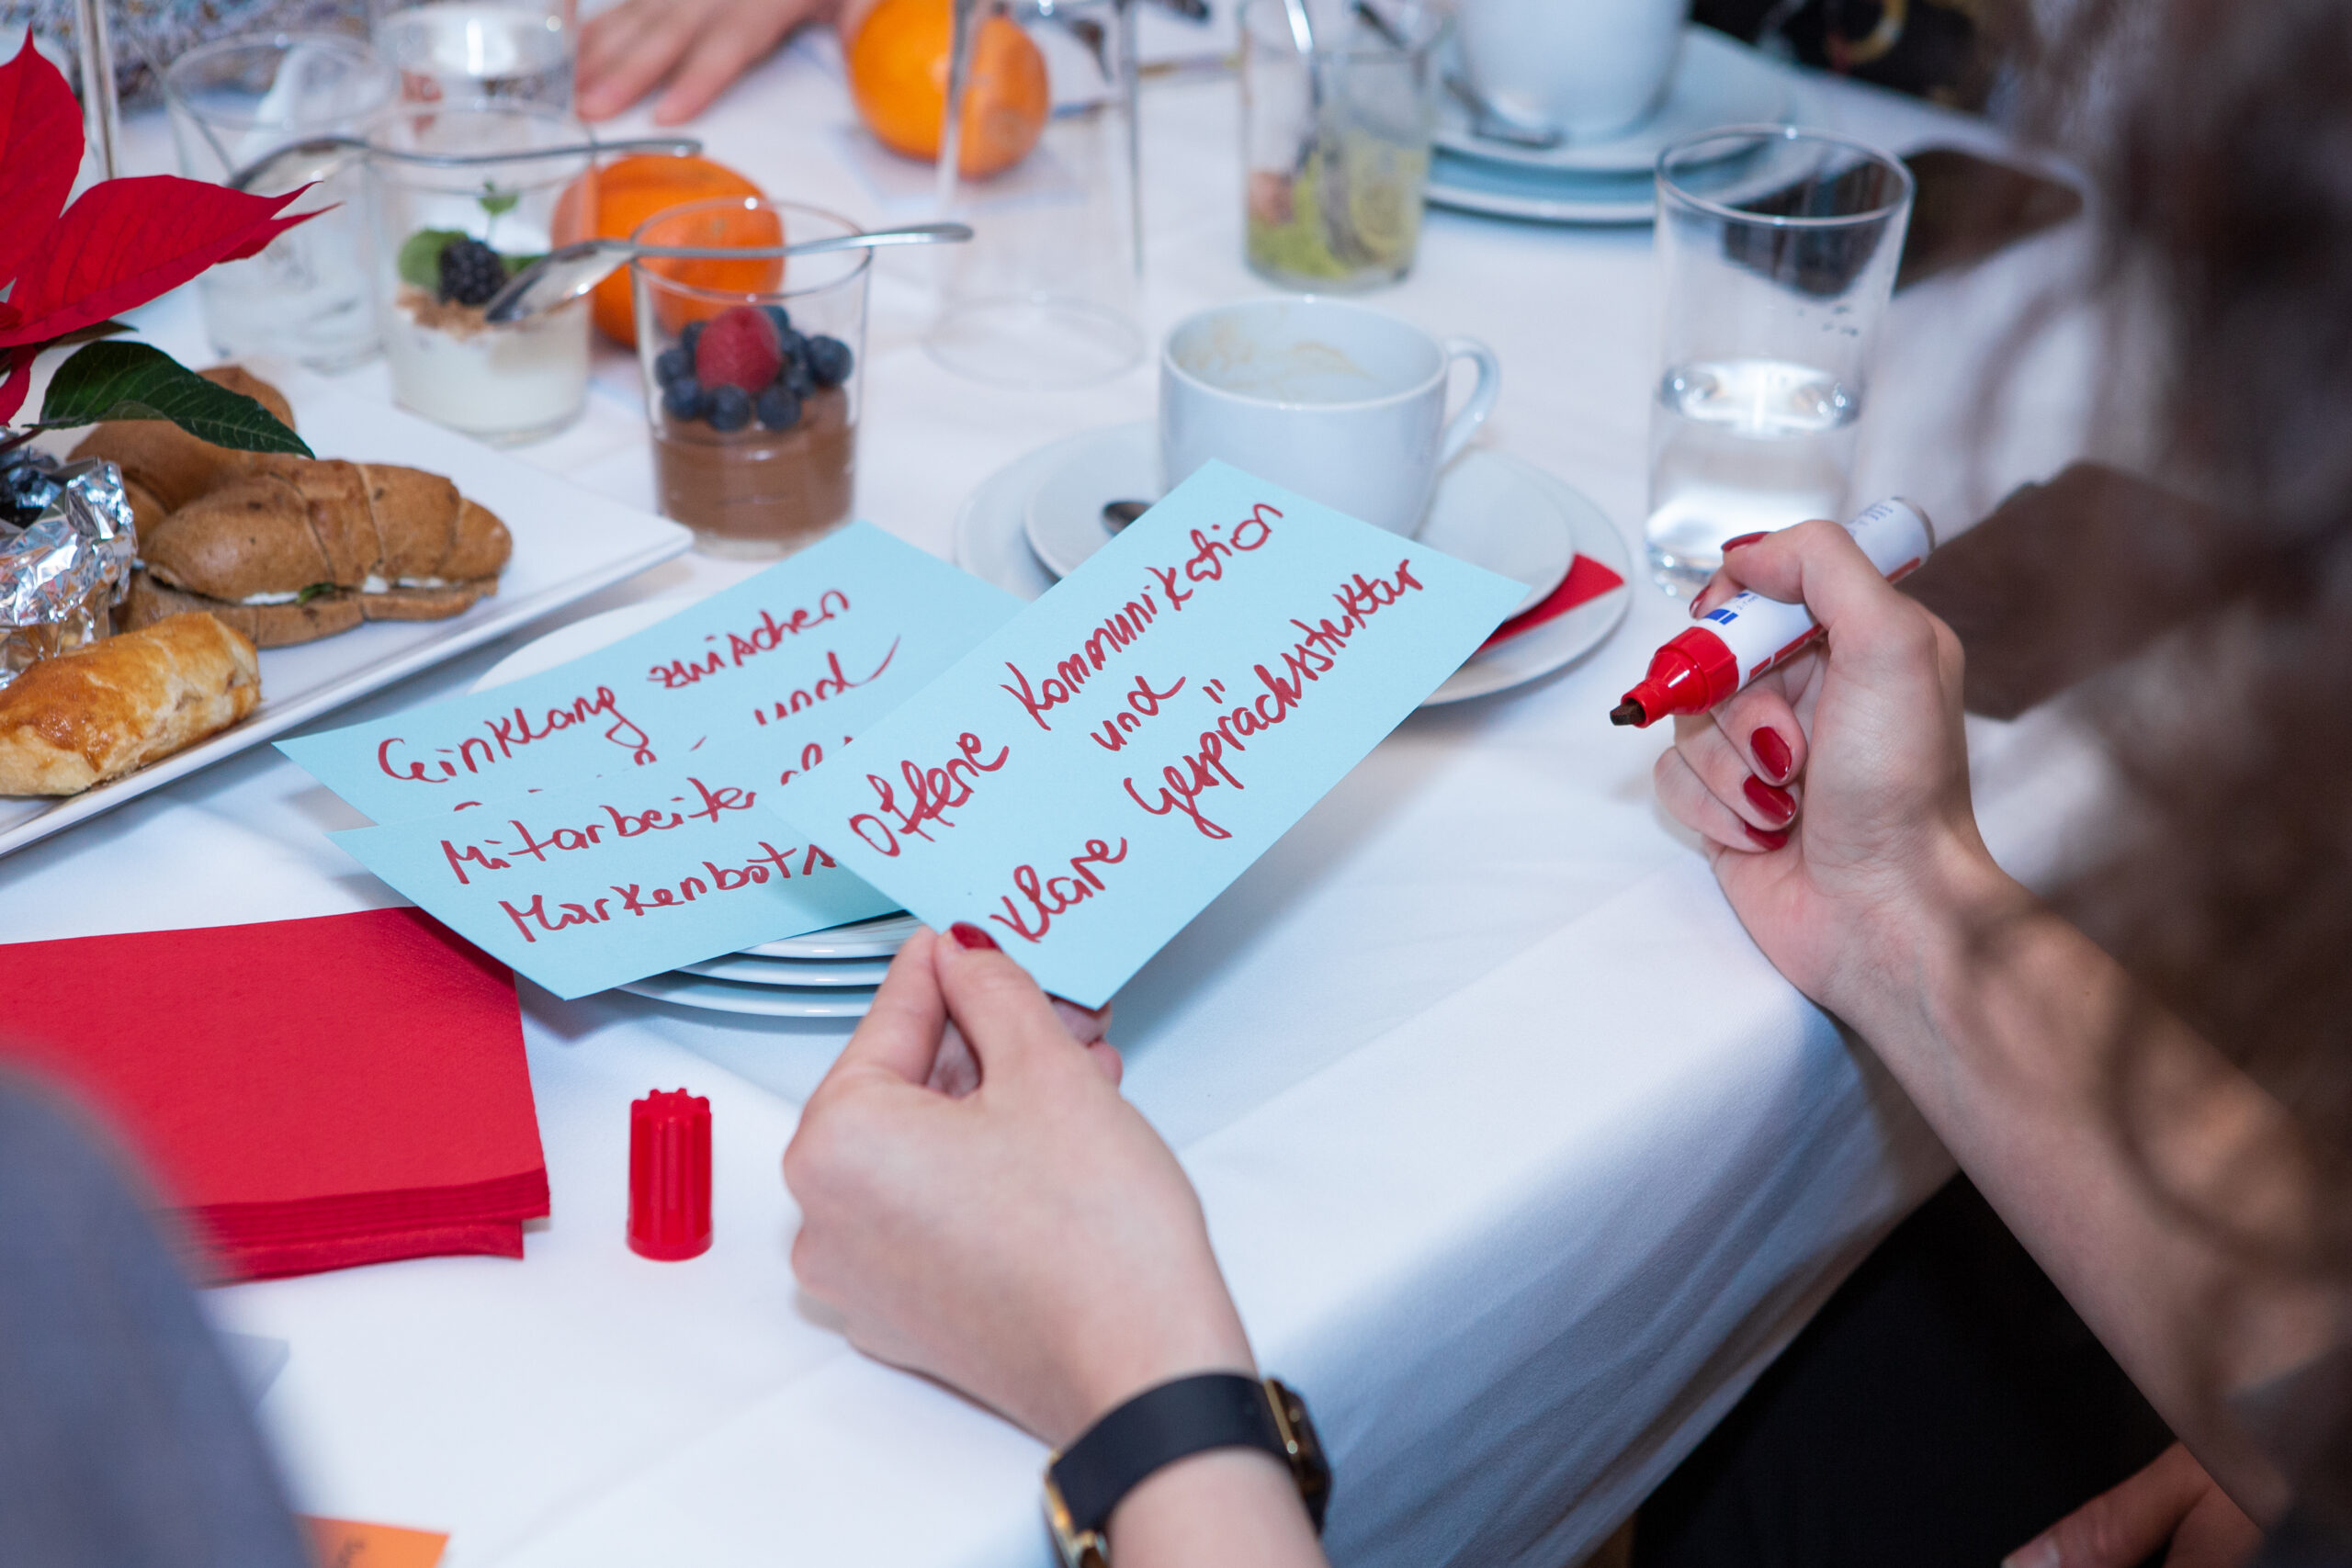 Einklang zwischen
und
Mitarbeiter
offene Kommunikation
und
klare Gesprächsstruktur